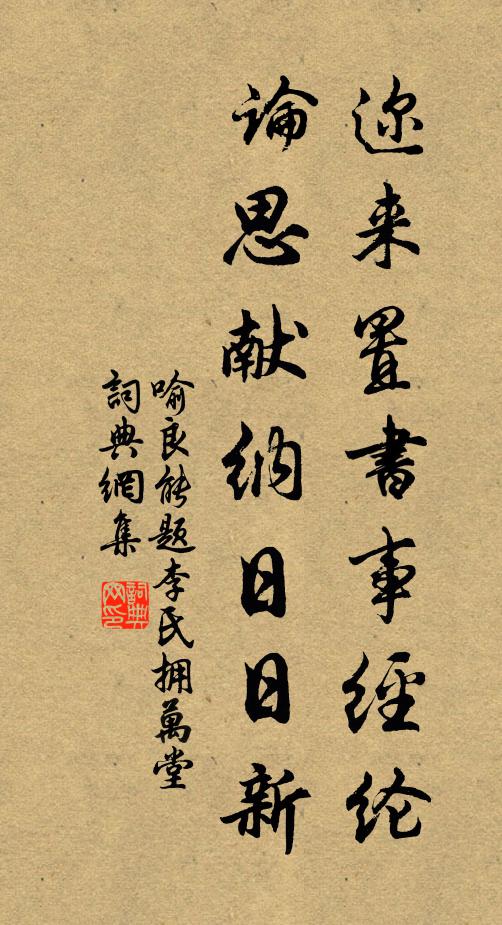 迩来置書事經纶
論思献纳日日新
喻良能题李氏拥萬堂
詞典網集
詞典网印